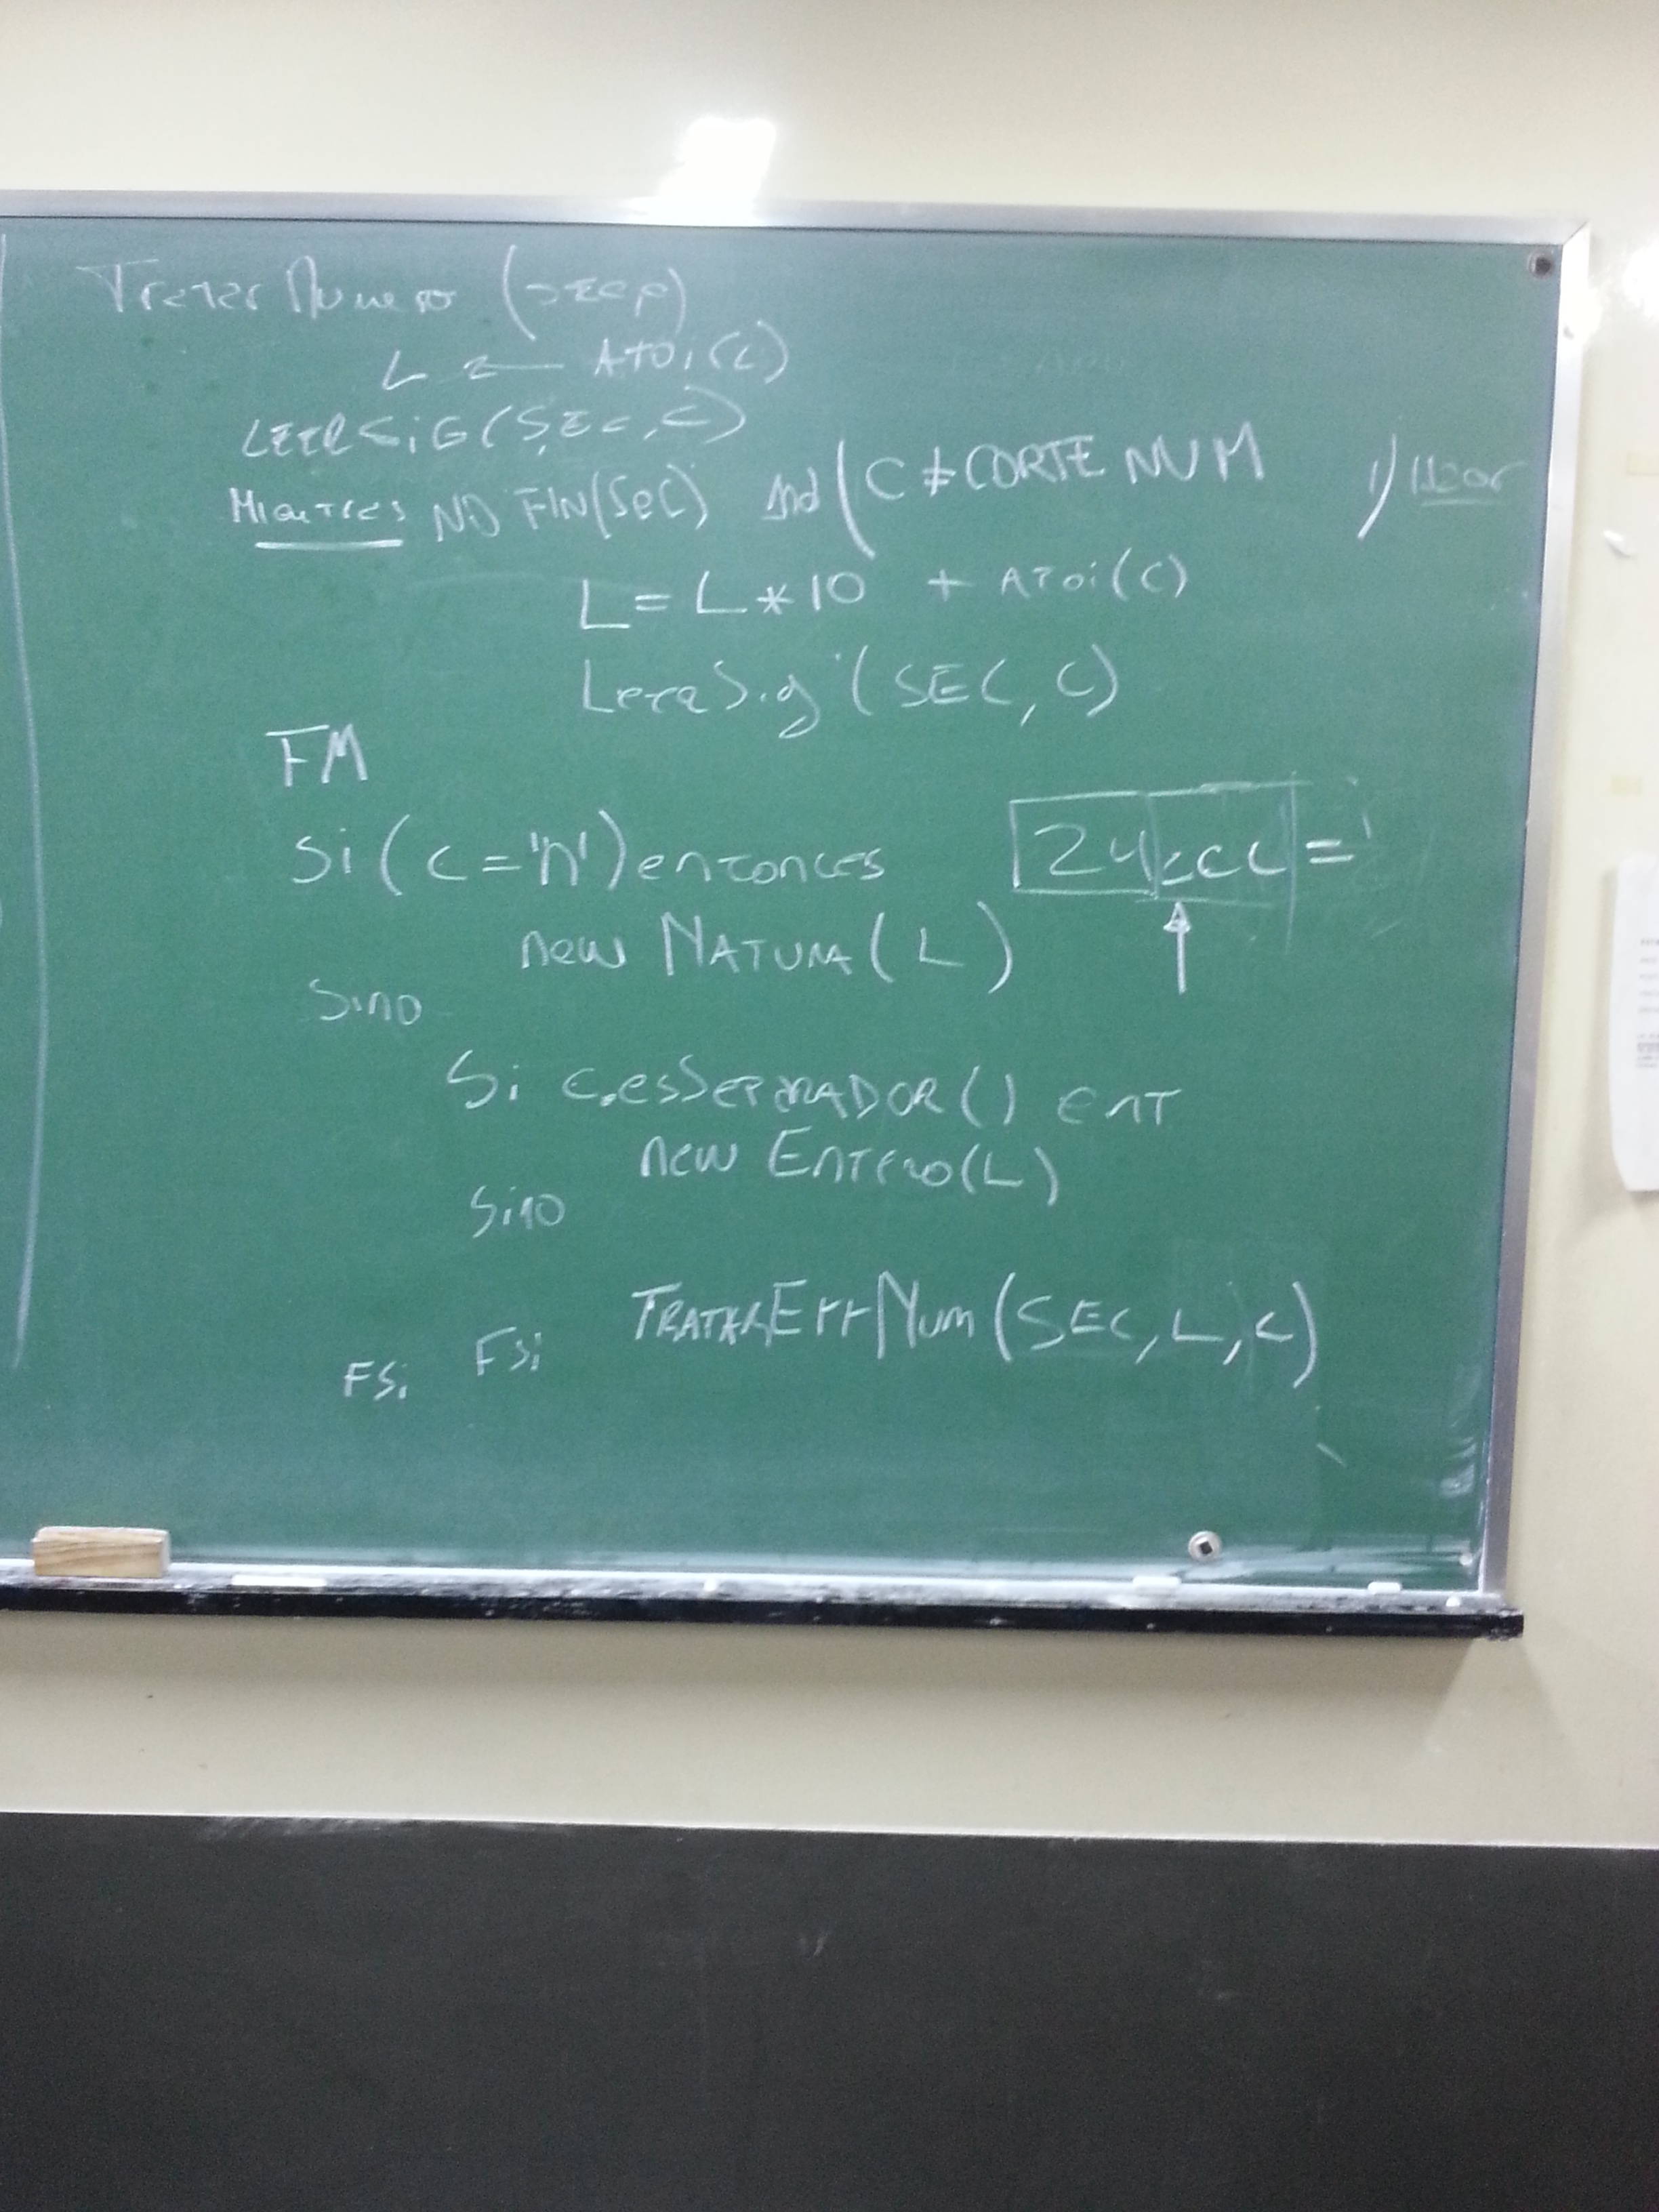 Tratar Numero (
L ← ATOi(C)
LEERSiG(SEC, C)
Mientras NO FIN(SEC) And (C ≠ CORTE NUM ) Hacer
L = L * 10 + ATOi(C)
LeerSig (SEC, C)
FM
Si (c = 'n') entonces
24ccc =
new NATURA( L )
Sino
Si c.esSEPARADOR() ent
new ENTERO(L)
Sino
TRATARErrNum (SEC, L, C)
FSi FSi